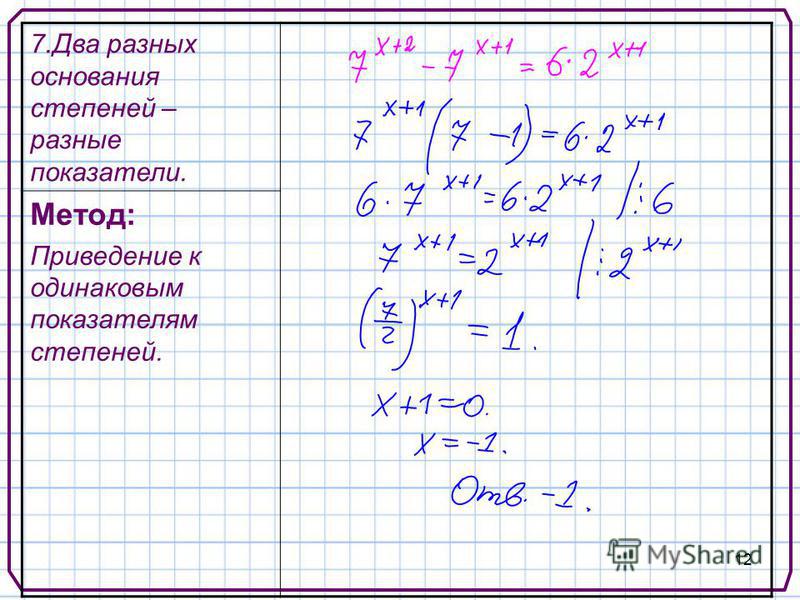 7.Два разных
основания
степеней –
разные
показатели.
Метод:
Приведение к
одинаковым
показателям
степеней.
7^(x+2) - 7^(x+1) = 6·2^(x+1)
7^(x+1) (7 - 1) = 6·2^(x+1)
6·7^(x+1) = 6·2^(x+1) | : 6
7^(x+1) = 2^(x+1) | : 2^(x+1)
(7/2)^(x+1) = 1.
x+1=0.
x=-1.
Отв. -1.
MyShared
12